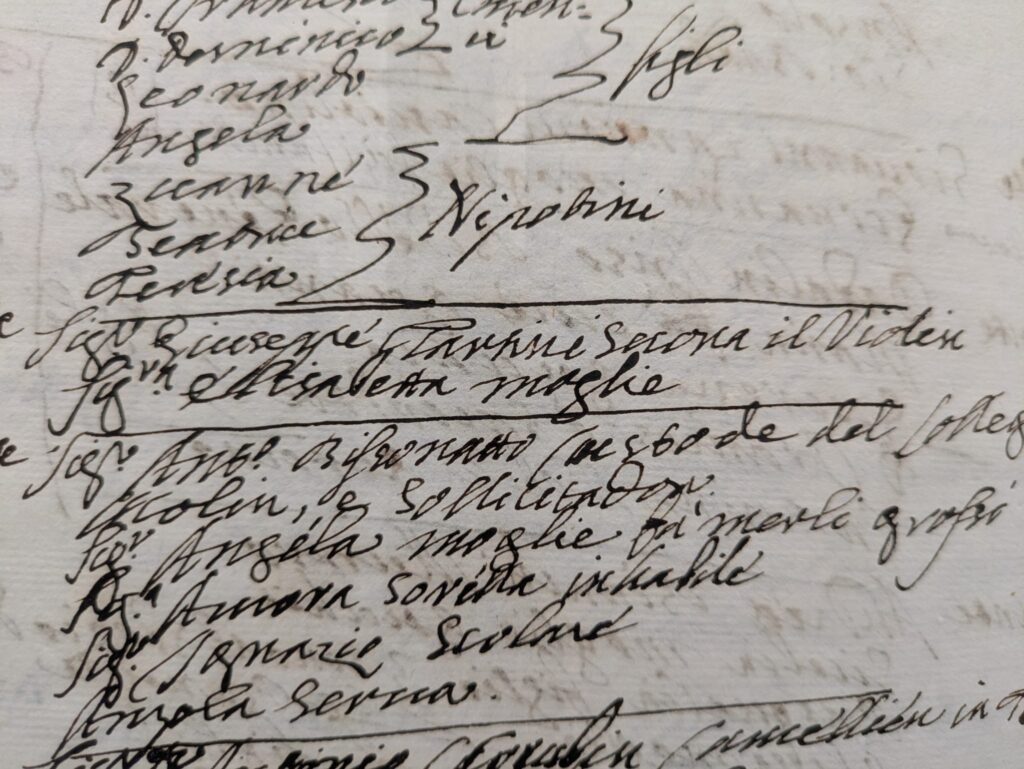 D. Domenico
Leonardo figli
Angela
Zuanne
Beatrice Nipotini
Teresia
Sig.r Giuseppe Tartini Suona il Violin
Sig.ra Elisabetta moglie
Sig.r Ant.o Bissonatto Custode del Colleg
e Sollicitador
Sig.ra Angela moglie fà merli grossi
Sig.ra sorella inhabile
Sig.r Ignazio Scolaré
Angela Serva.
in